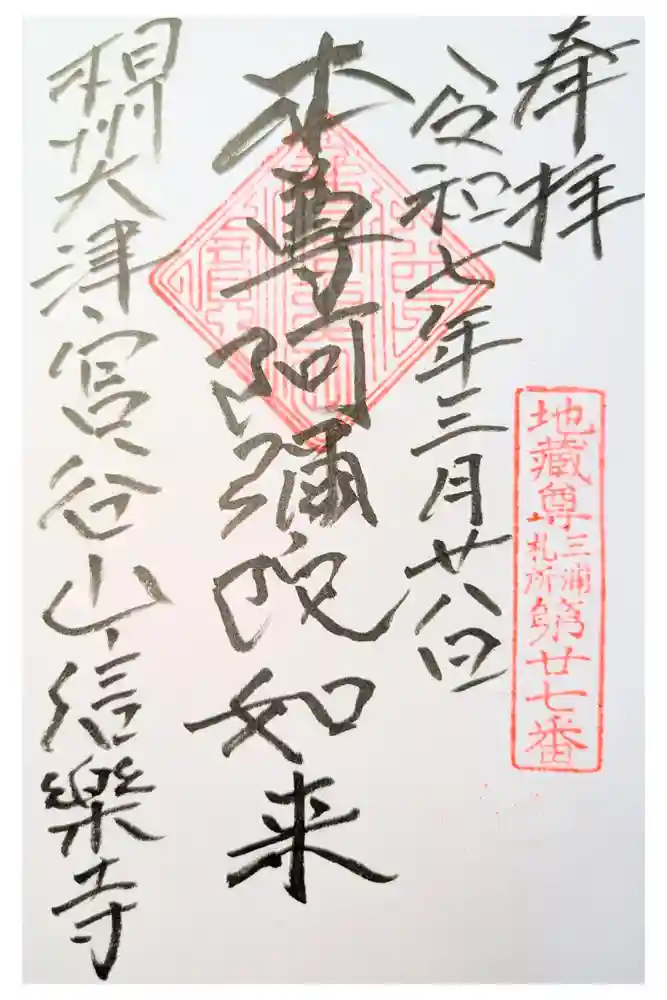 奉拝
地蔵尊三浦札所第廿七番
令和七年三月廿八日
本尊阿彌陀如来
相州大津宮谷山信樂寺